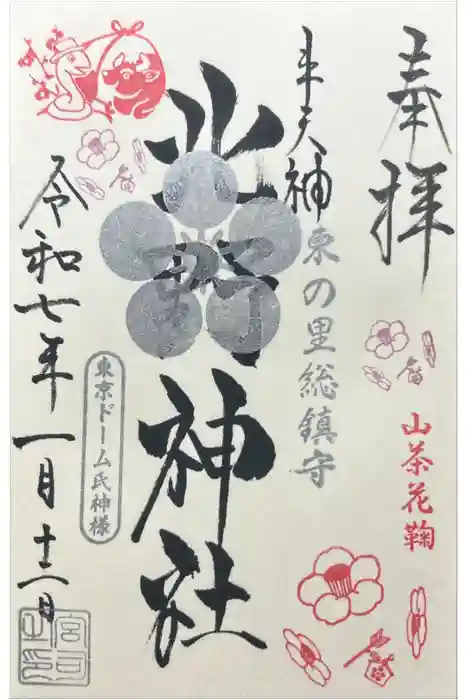 奉拝
牛天神
東の里総鎮守
山茶花鞠
北野神社
東京ドーム氏神様
令和七年一月十二日
宮司之印